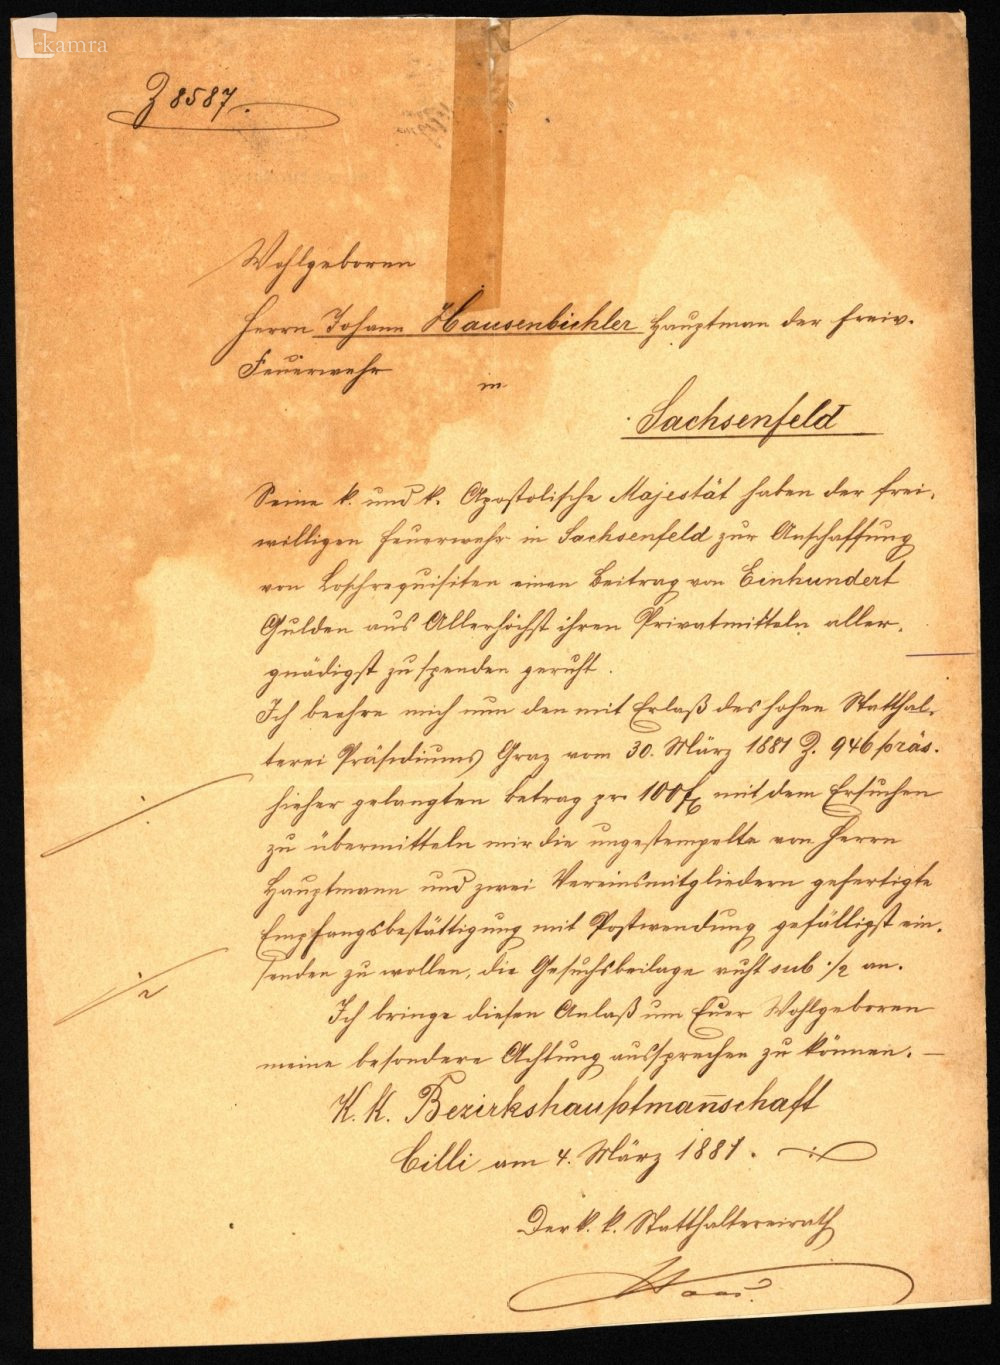 kamra
Z 8587.
Wohlgeboren
Herrn Johann Hausenbichler Hauptman der freiw.
Feuerwehr
in
Sachsenfeld
Seine k. und k. Apostolische Majestät haben der frei-
willigen Feuerwehr in Sachsenfeld zur Anschaffung
von Löschrequisiten einen Beitrag von Einhundert
Gulden aus Allerhöchst ihren Privatmitteln aller-
gnädigst zu spenden geruht.
Ich beehre mich nun den mit Erlaß des hohen Statthal-
terei Präsidiums Graz vom 30. März 1881 Z. 946 präs.
hieher gelangten Betrag pr. 100 f mit dem Ersuchen
zu übermitteln mir die ungestempelte von Herrn
Hauptmann und zwei Vereinsmitgliedern gefertigte
Empfangsbestättigung mit Postwendung gefälligst ein-
senden zu wollen, die Gesuchsbeilage ruht sub ·/2 an.
Ich bringe diesen Anlaß um Euer Wohlgeboren
meine besondere Achtung aussprechen zu können. —
K. K. Bezirkshauptmannschaft
Cilli am 4. März 1881.
Der k. k. Statthaltereirath
Haas